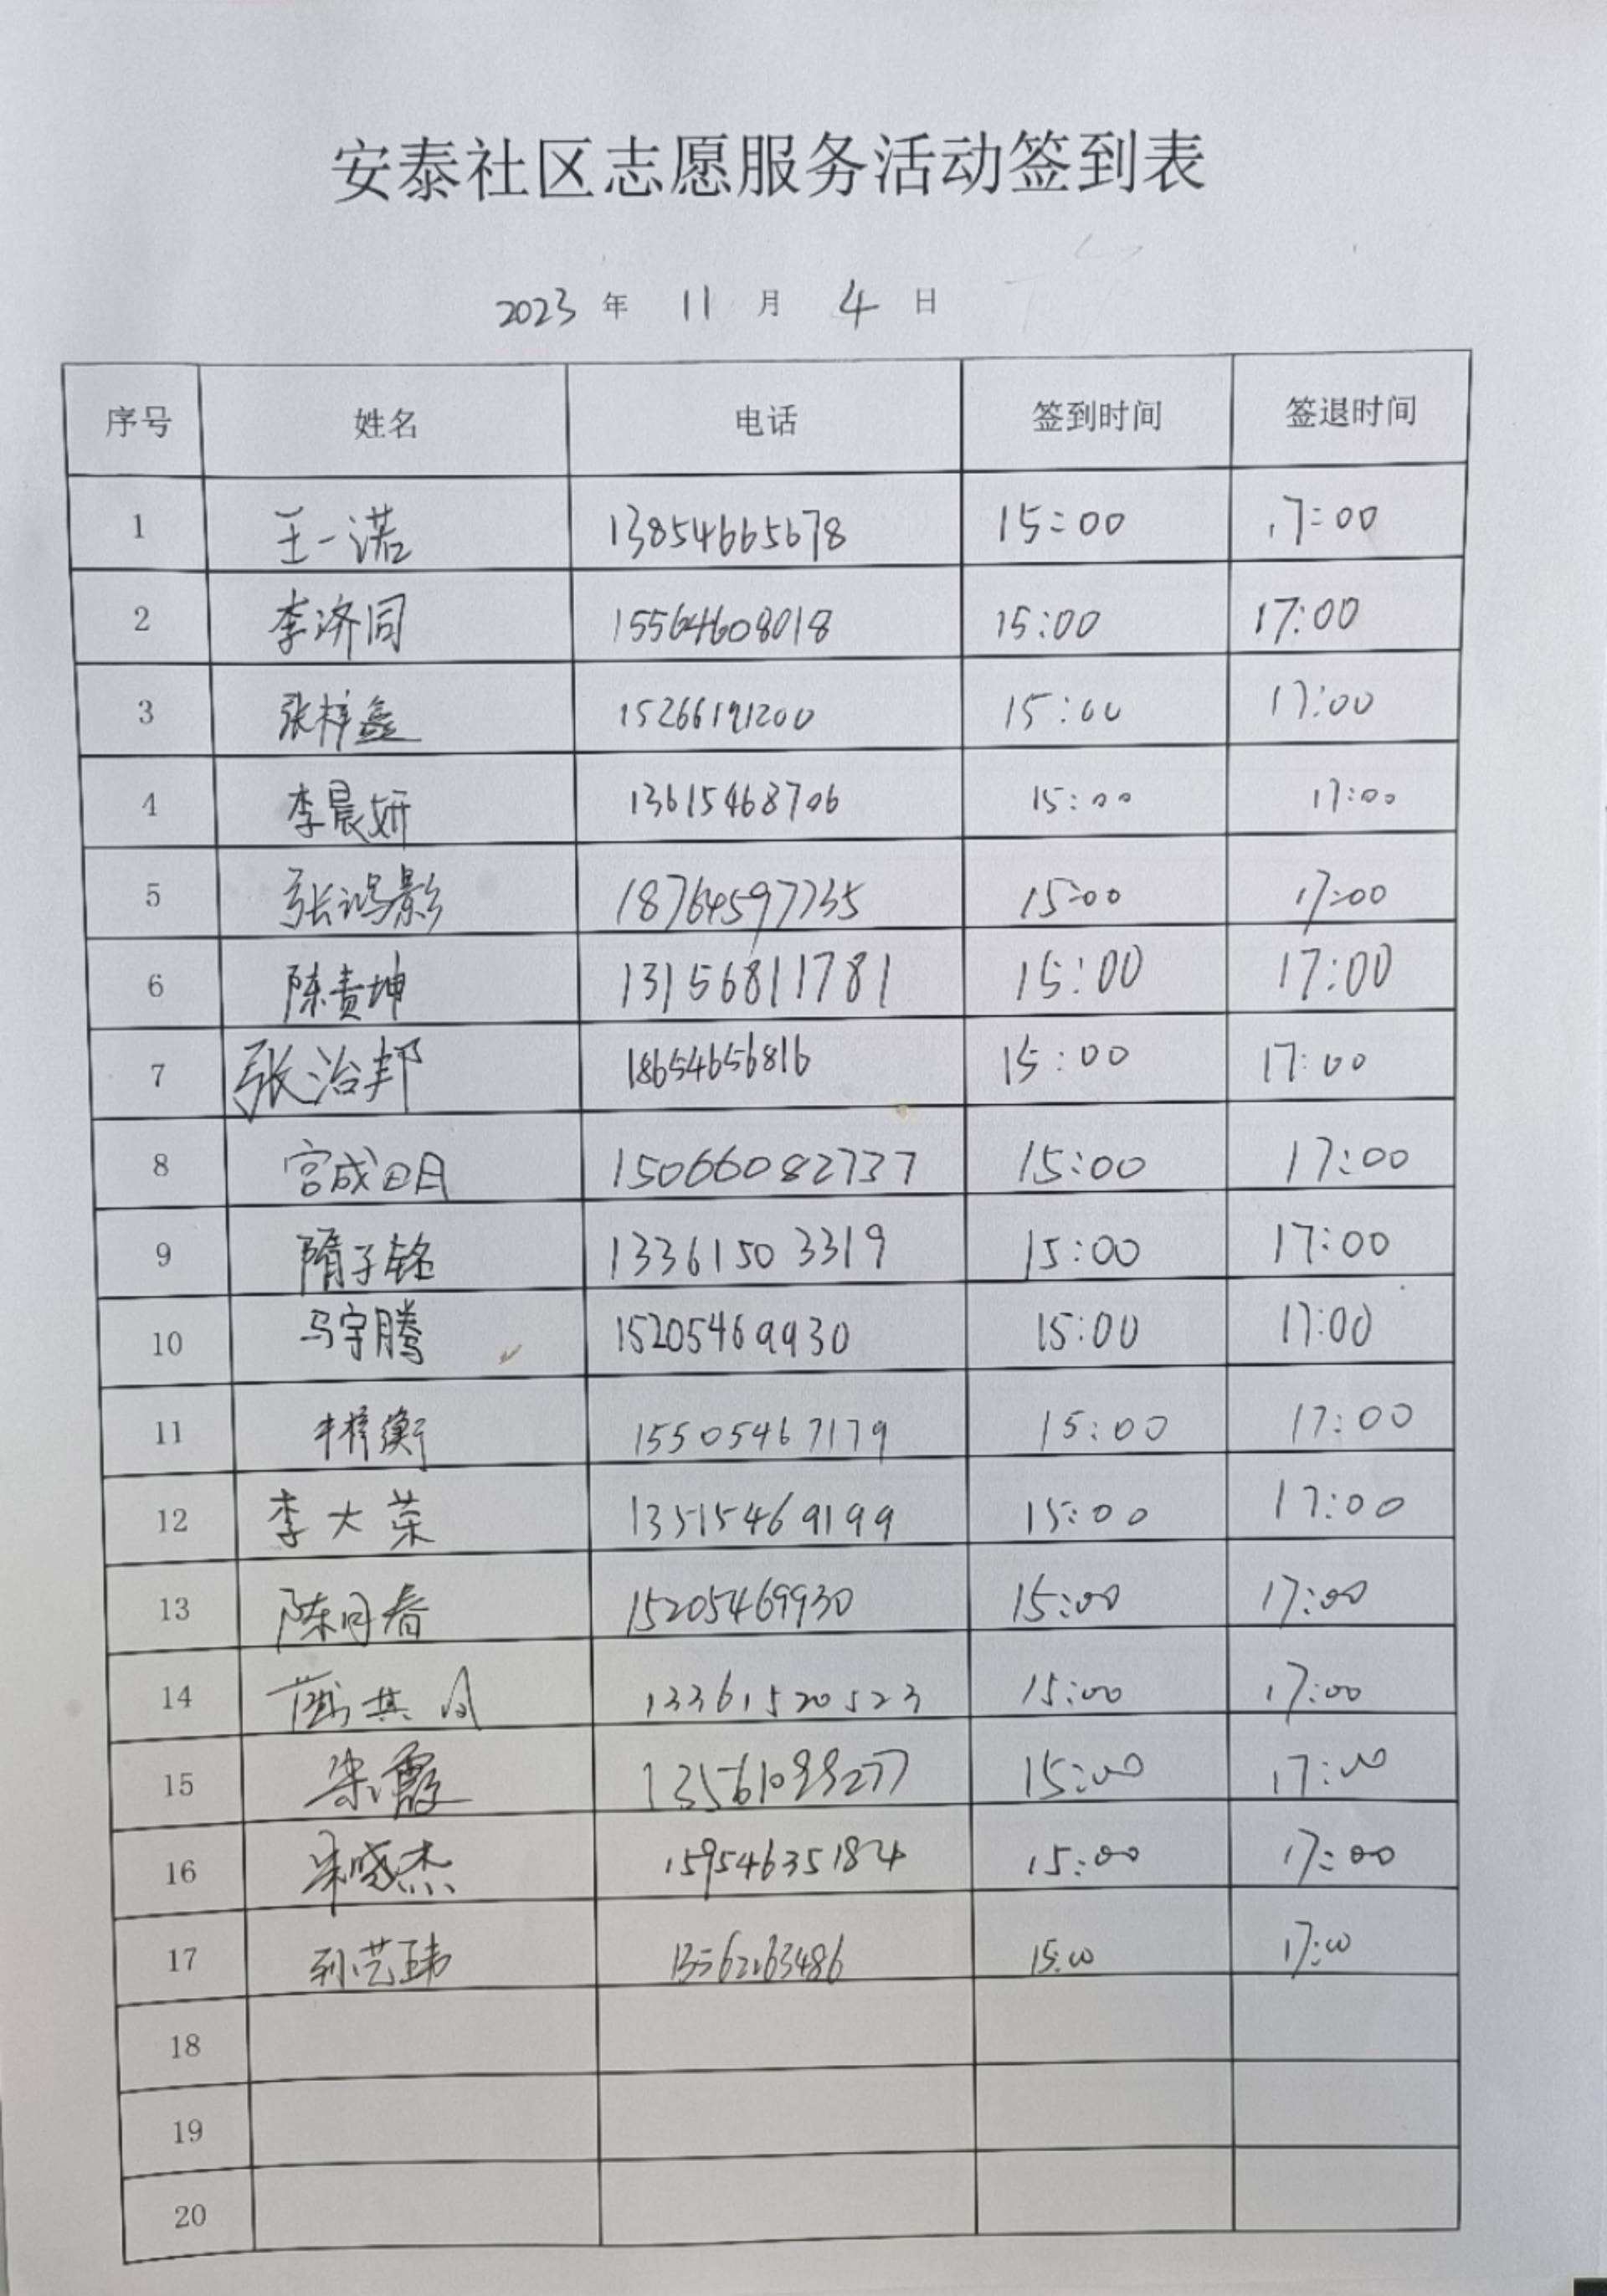 安泰社区志愿服务活动签到表
2023 年 11 月 4 日
序号 姓名 电话 签到时间 签退时间
1 王一诺 13854665678 15:00 17:00
2 李济同 15564608018 15:00 17:00
3 张梓鑫 15266191200 15:00 17:00
4 李晨妍 13615468706 15:00 17:00
5 张鸿影 18764597735 15:00 17:00
6 陈贵坤 13156811781 15:00 17:00
7 张治邦 18654656816 15:00 17:00
8 宫成明 15066082737 15:00 17:00
9 隋子铭 13361503319 15:00 17:00
10 马宇腾 15205469930 15:00 17:00
11 牛梓衡 15505467179 15:00 17:00
12 李大荣 13515469199 15:00 17:00
13 陈月春 15205469930 15:00 17:00
14 13361520523 15:00 17:00
15 霞 15:00 17:00
16 宋晓杰 15954635184 15:00 17:00
17 刘艺玮 13562263486 15:00 17:00
18
19
20